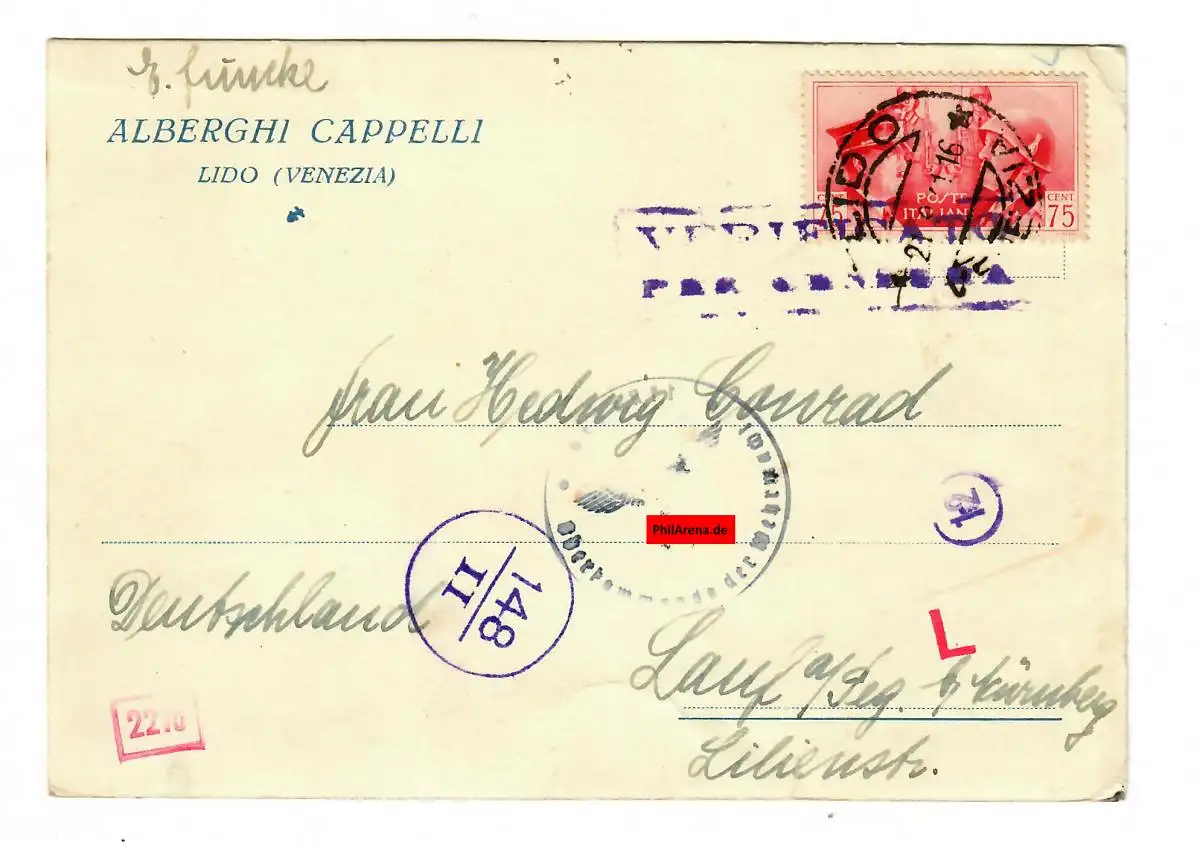 E. Funcke
ALBERGHI CAPPELLI
LIDO (VENEZIA)
LIDO VENEZIA
CENT 75
POSTE
ITALIANE
CENT. 75
VERIFICATO
PER CENSURA
Frau Hedwig Conrad
Oberkommando der Wehrmacht
PhilArena.de
12
148
II
Deutschland
L
Lauf a/Peg. b/Nürnberg
Lilienstr.